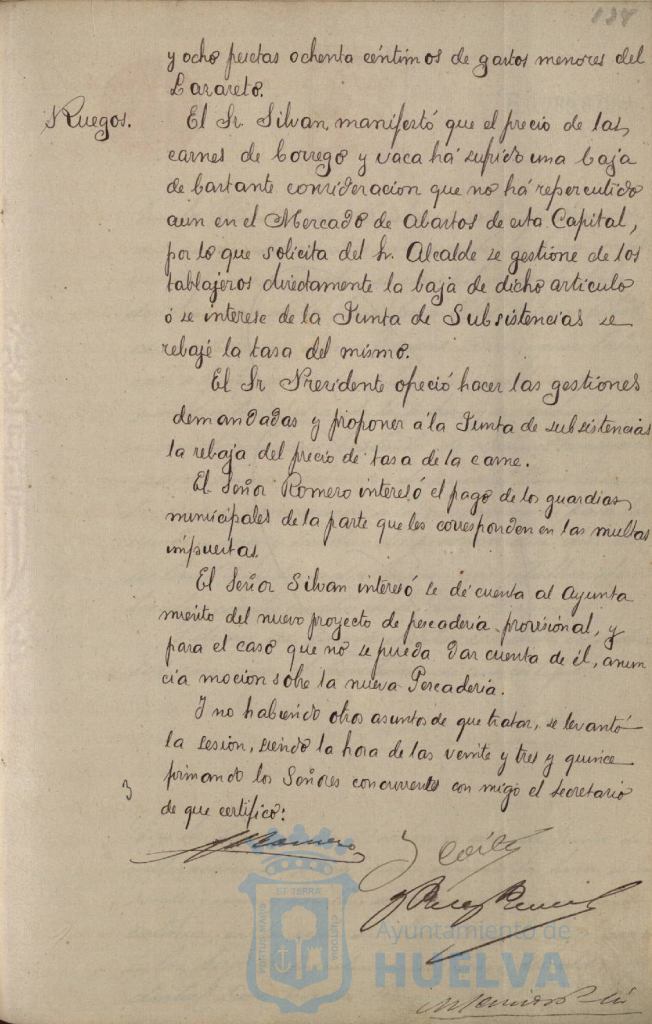 y ocho pesetas ochenta céntimos de gastos menores del
Lazareto.
Ruegos.
El Sr. Silvan, manifestó que el precio de las
carnes de borrego y vaca há sufrido una baja
de bastante consideracion que no há repercutido
aun en el Mercado de Abastos de esta Capital,
por lo que solicita del Sr. Alcalde se gestione de los
tablajeros directamente la baja de dicho articulo
ó se interese de la Junta de Subsistencias se
rebajé la tasa del mismo.
El Sr Presidente ofreció hacer las gestiones
demandadas y proponer á la Junta de subsistencias
la rebaja del precio de tasa de la carne.
El Señor Romero interesó el pago de los guardias
municipales de la parte que les corresponden en las multas
impuestas.
El Señor Silvan interesó se dé cuenta al Ayunta
miento del nuevo proyecto de pescadería provisional, y
para el caso que no se pueda dar cuenta de él, anun
cia mocion sobre la nueva Pescadería.
Y no habiendo otros asuntos de que tratar, se levantó
la sesion, siendo la hora de las veinte y tres y quince
firmando los Señores concurrentes con migo el secretario
de que certifico:
3
Romero
PORTUS MARIS
ET TERRA
CUSTODIA
Ayuntamiento de
HUELVA